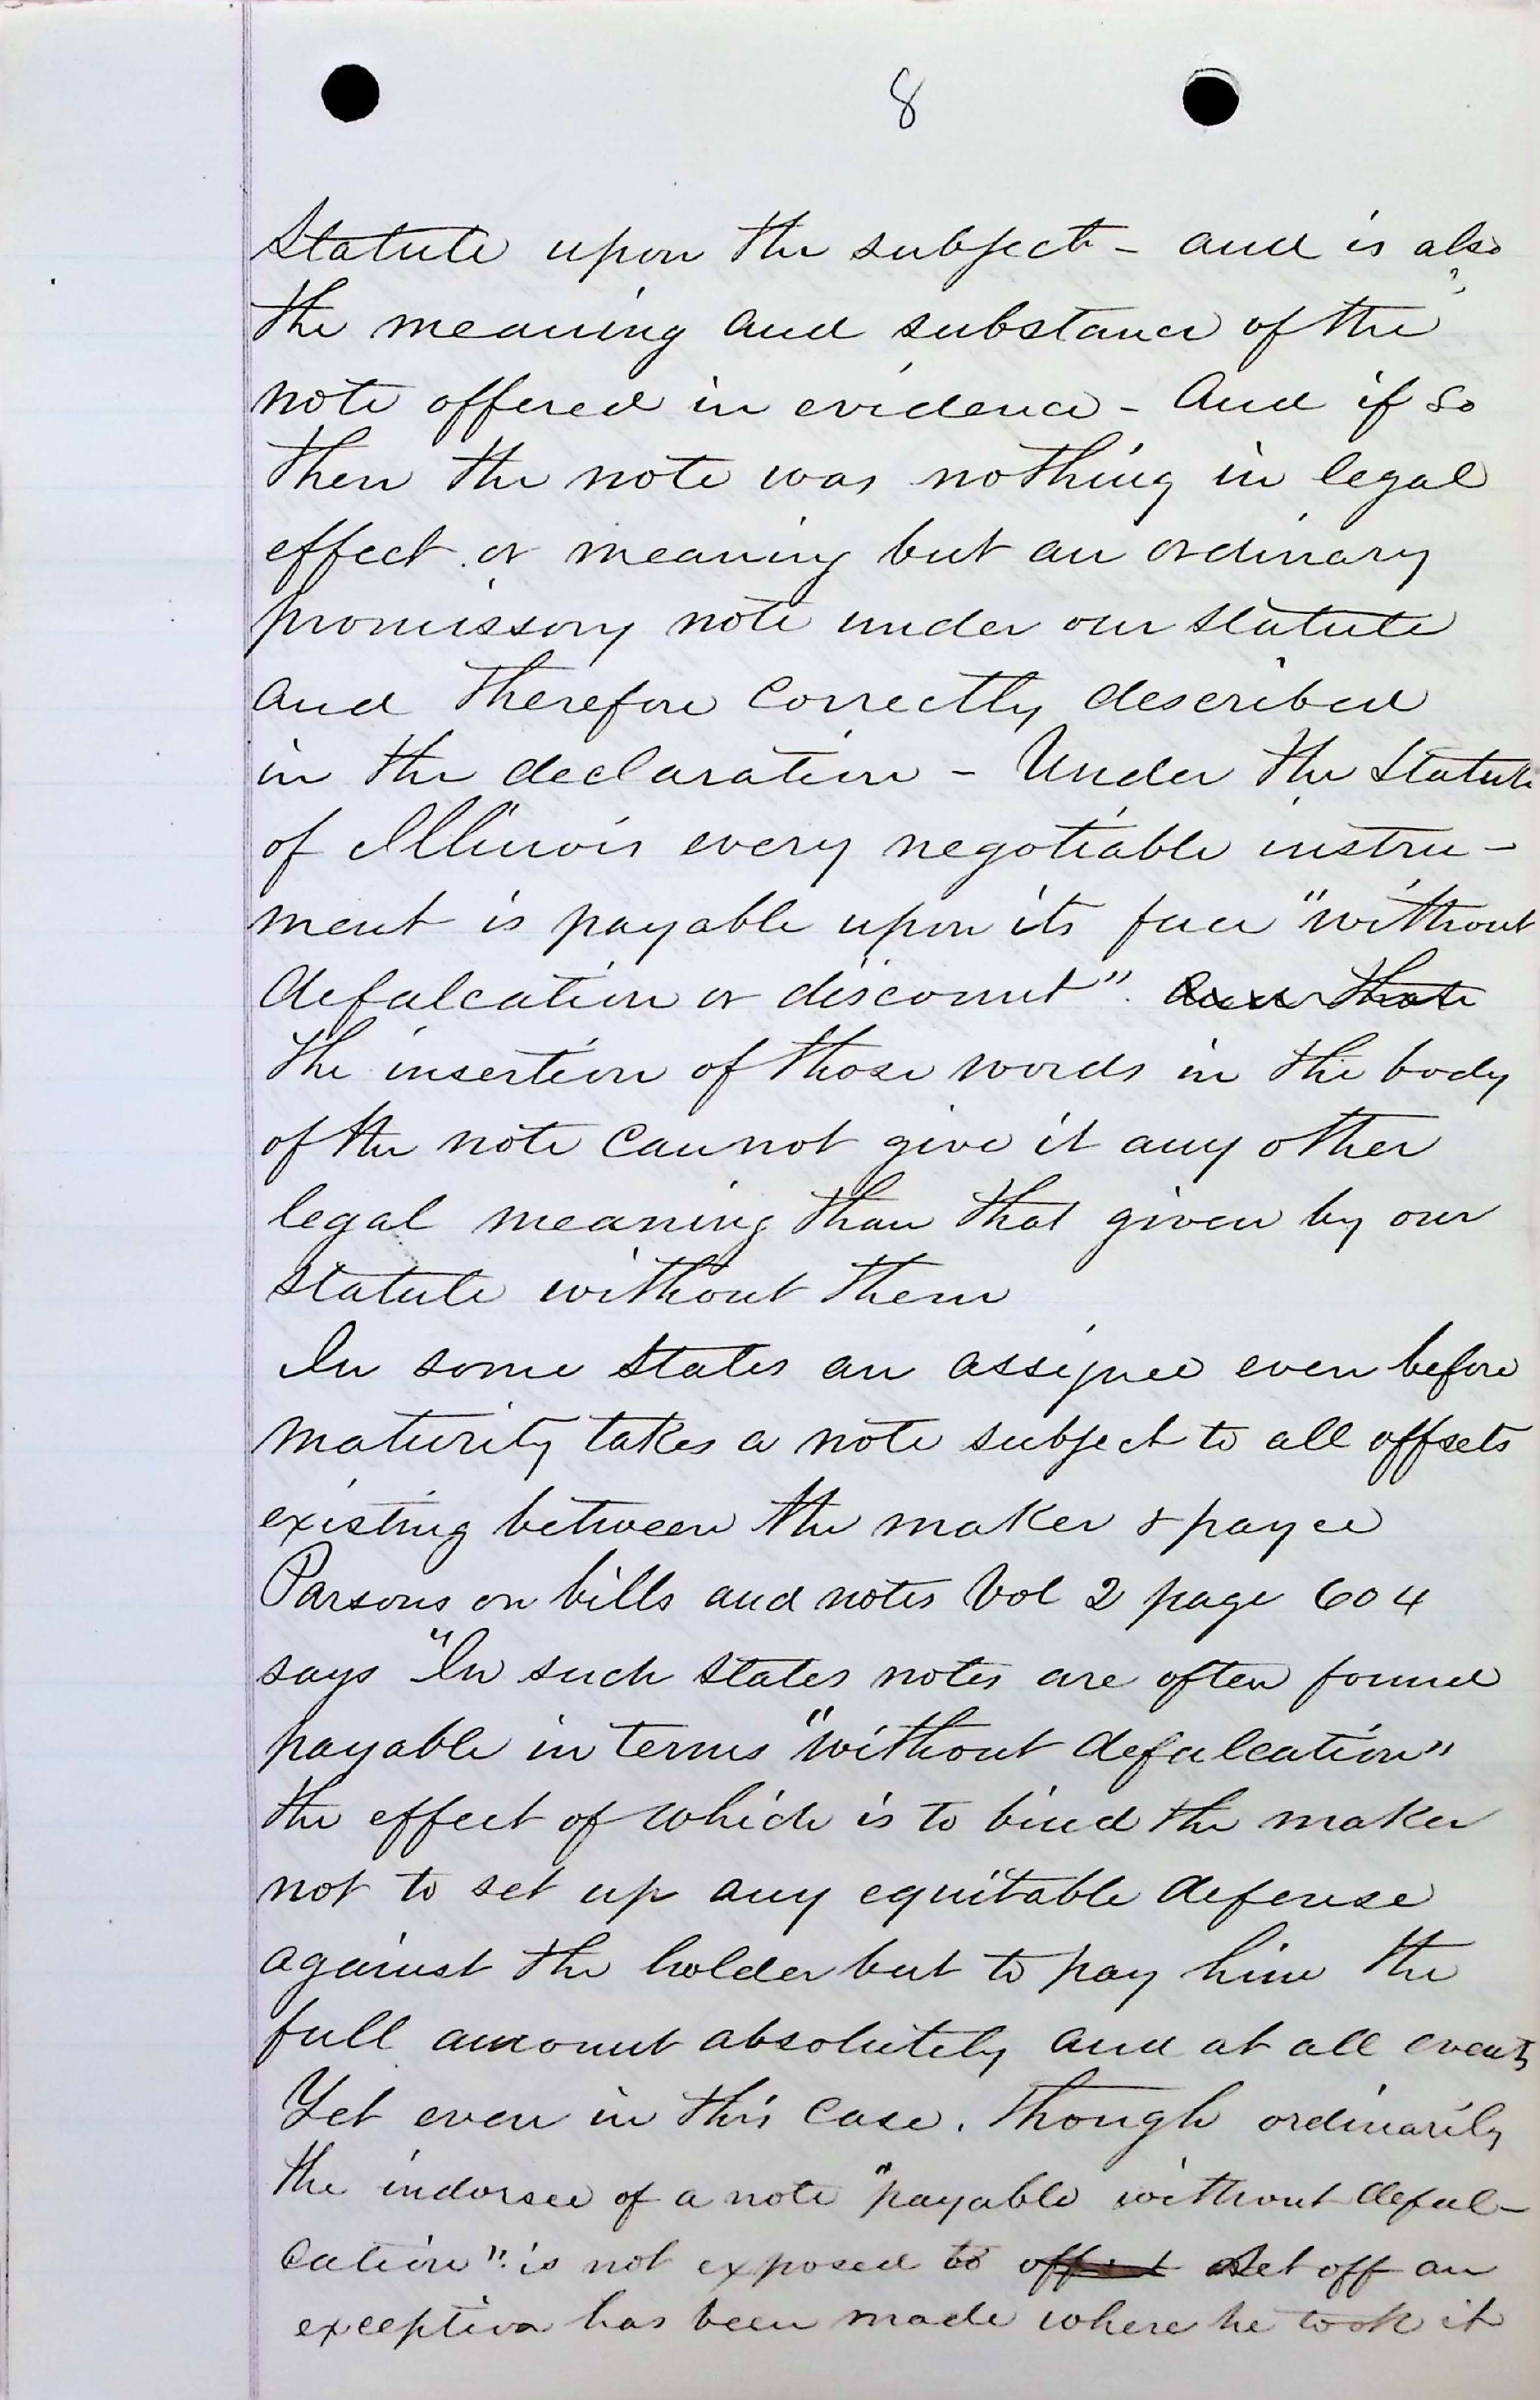 8
Statute upon the subject - and is also
the meaning and substance of the
note offered in evidence - And if so
then the note was nothing in legal
effect or meaning but an ordinary
promissory note under our statute
and therefore correctly described
in the declaration - Under the Statute
of Illinois every negotiable instru-
ment is payable upon its face "without
defalcation or discount".
the insertion of those words in the body
of the note cannot give it any other
legal meaning than that given by our
statute without them
In some states an assignee even before
maturity takes a note subject to all offsets
existing between the maker & payee
Parsons on bills and notes Vol 2 page 604
says "In such states notes are often found
payable in terms "without defalcation"
the effect of which is to bind the maker
not to set up any equitable defense
against the holder but to pay him the
full amount absolutely and at all events
Yet even in this case, though ordinarily
the indorsee of a note "payable without defal-
cation" is not exposed to set off an
exception has been made where he took it